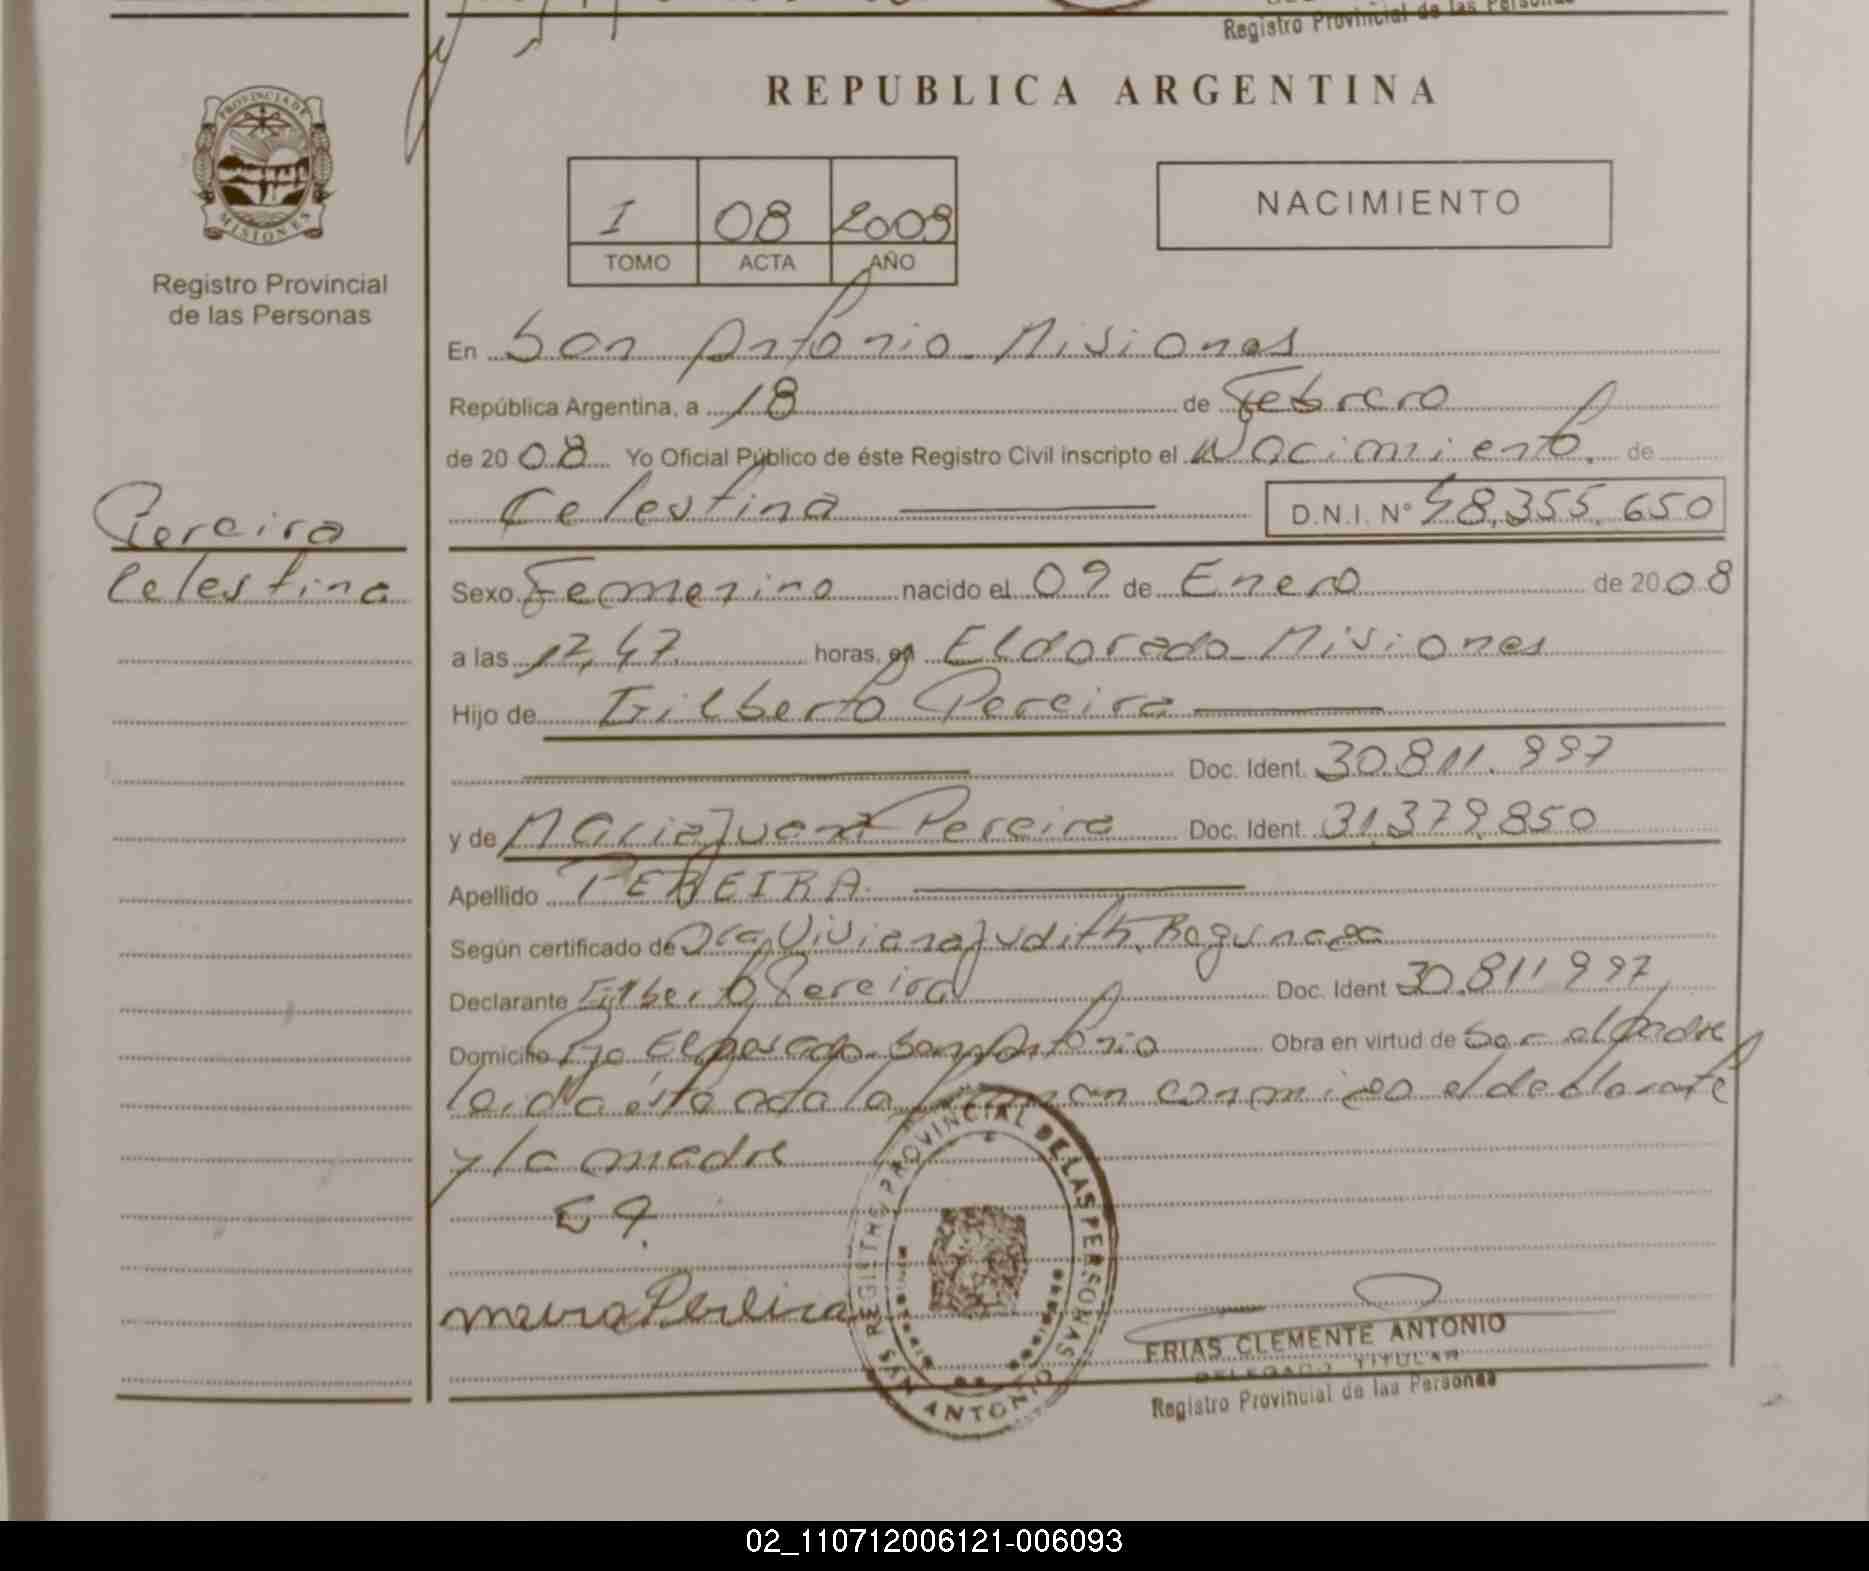 Registro Provincial de las Personas
REPUBLICA ARGENTINA
PROVINCIA DE
MISIONES
Registro Provincial
de las Personas
I 08 2009
TOMO ACTA AÑO
NACIMIENTO
En San Antonio Misiones
República Argentina, a 18 de Febrero
de 2008 Yo Oficial Público de éste Registro Civil inscripto el Nacimiento de
Celestina D.N.I. N° 48.355.650
Pereira
Celestina
Sexo Femenino nacido el 09 de Enero de 2008
a las 12,47 horas, en Eldorado Misiones
Hijo de Gilberto Pereira
Doc. Ident. 30.811.997
y de Maria Juana Pereira Doc. Ident. 31.379.850
Apellido PEREIRA
Según certificado de Dra. Viviana Judith
Declarante Gilberto Pereira Doc. Ident 30.811 997
Domicilio Pje El Pesado San Antonio Obra en virtud de Ser el padre
leida ésta acta la firman conmigo el declarante
y la madre
Pereira
REGISTRO PROVINCIAL DE LAS PERSONAS
SAN ANTONIO
FRIAS CLEMENTE ANTONIO
DELEGADO TITULAR
Registro Provincial de las Personas
02_110712006121-006093